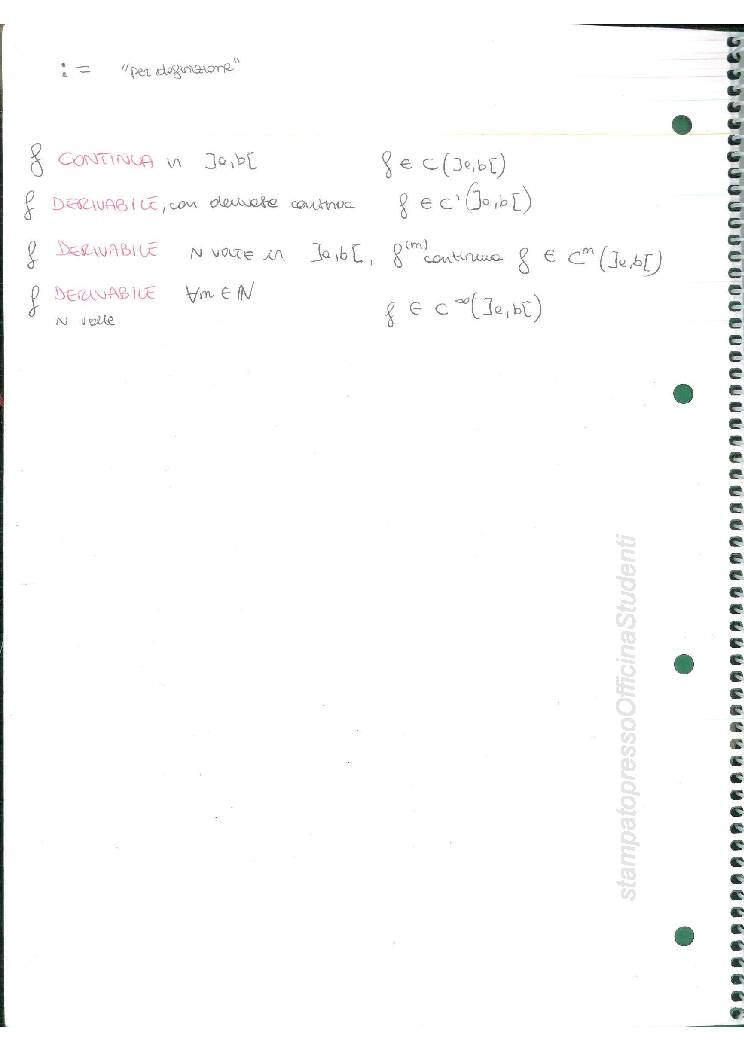 := "per definizione"
f CONTINUA in ]a,b[ f ∈ C(]a,b[)
f DERIVABILE, con derivate continua f ∈ C¹(]a,b[)
f DERIVABILE N VOLTE in ]a,b[, f⁽ⁿ⁾ continua f ∈ Cⁿ(]a,b[)
f DERIVABILE ∀n ∈ ℕ f ∈ C^∞(]a,b[)
N volte
stampatopressoOfficinaStudenti